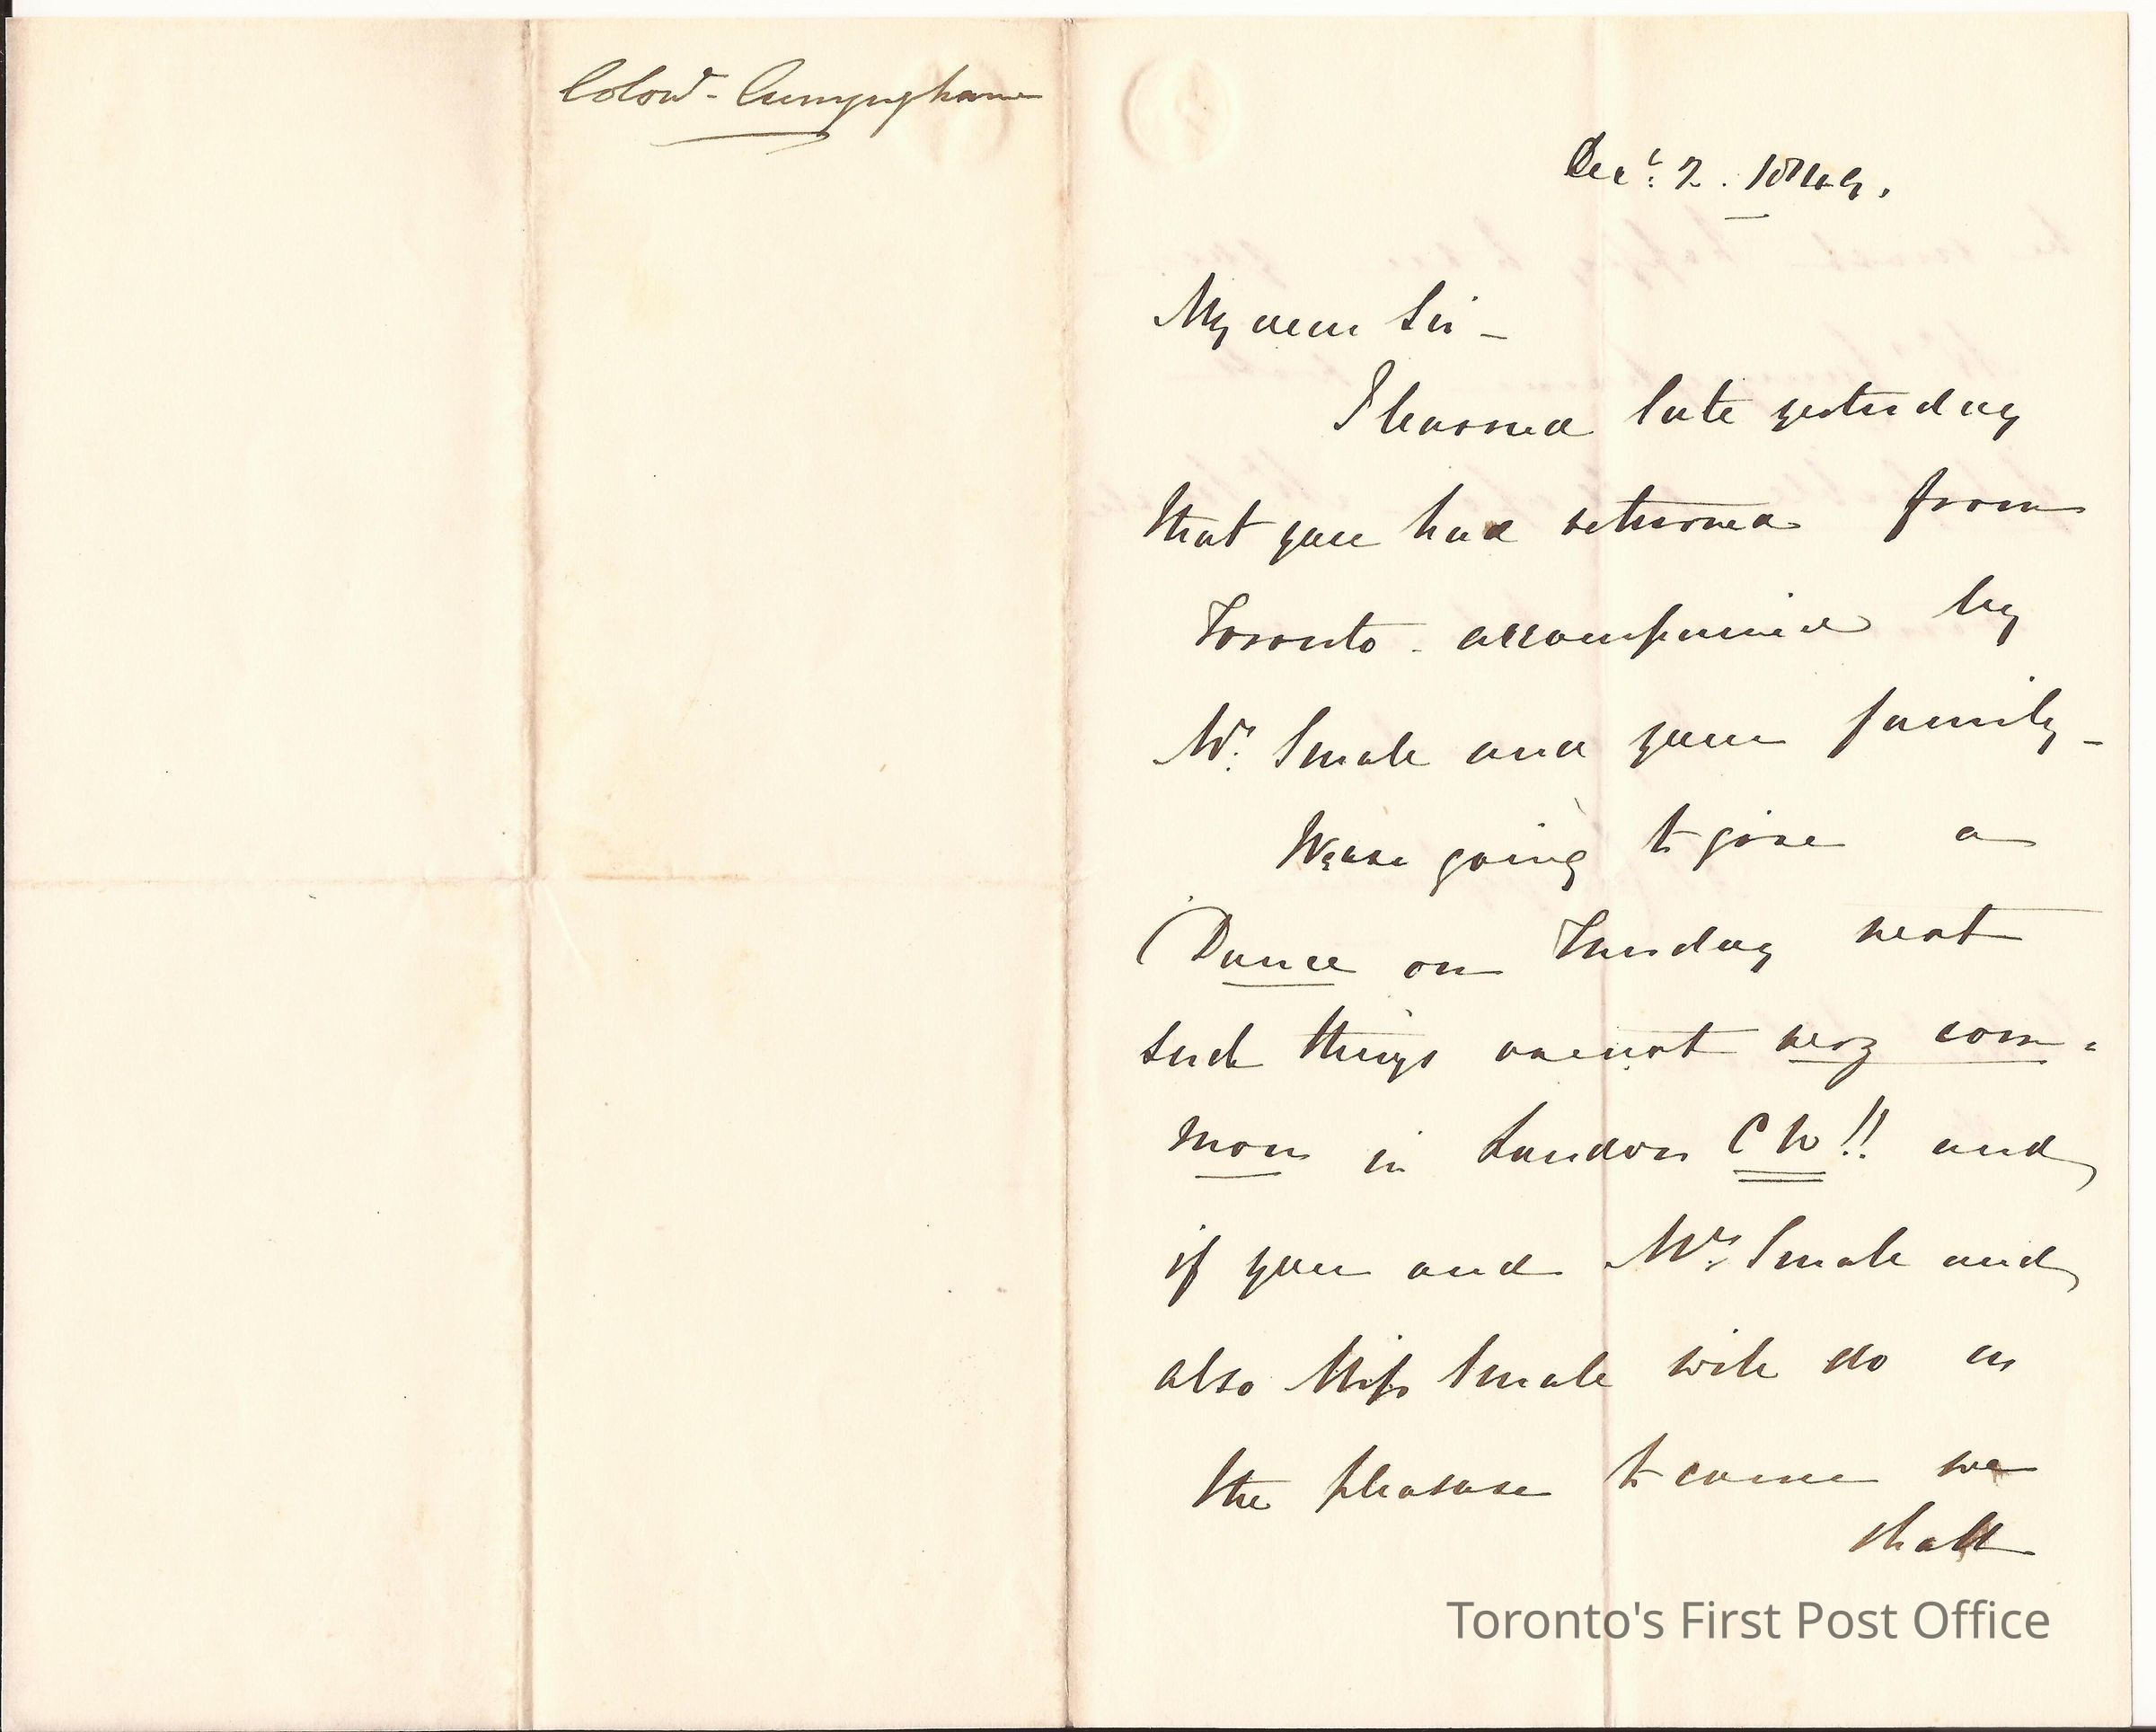 Colonl - Cunynghame
Decr 2. 1849.
My dear Sir -
I learned late yesterday
that you had returned from
Toronto - accompanied by
Mrs Small and your family -
We are going to give a
Dance on Tuesday next
such things are not very com-
mon in London CW!! and
if you and Mrs Small and
also Miss Small will do us
the pleasure to come we
shall
Toronto's First Post Office